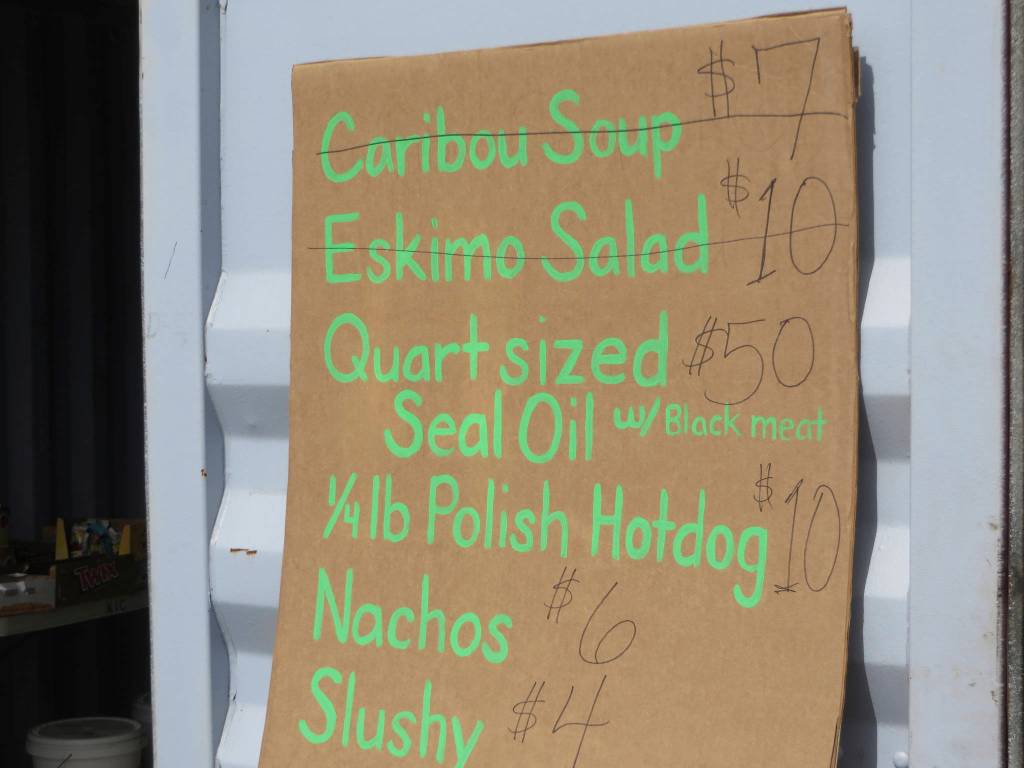 Caribou Soup $7
Eskimo Salad $10
Quart sized $50
Seal Oil w/ Black meat
1/4 lb Polish Hotdog $10
Nachos $6
Slushy $4
TWIX